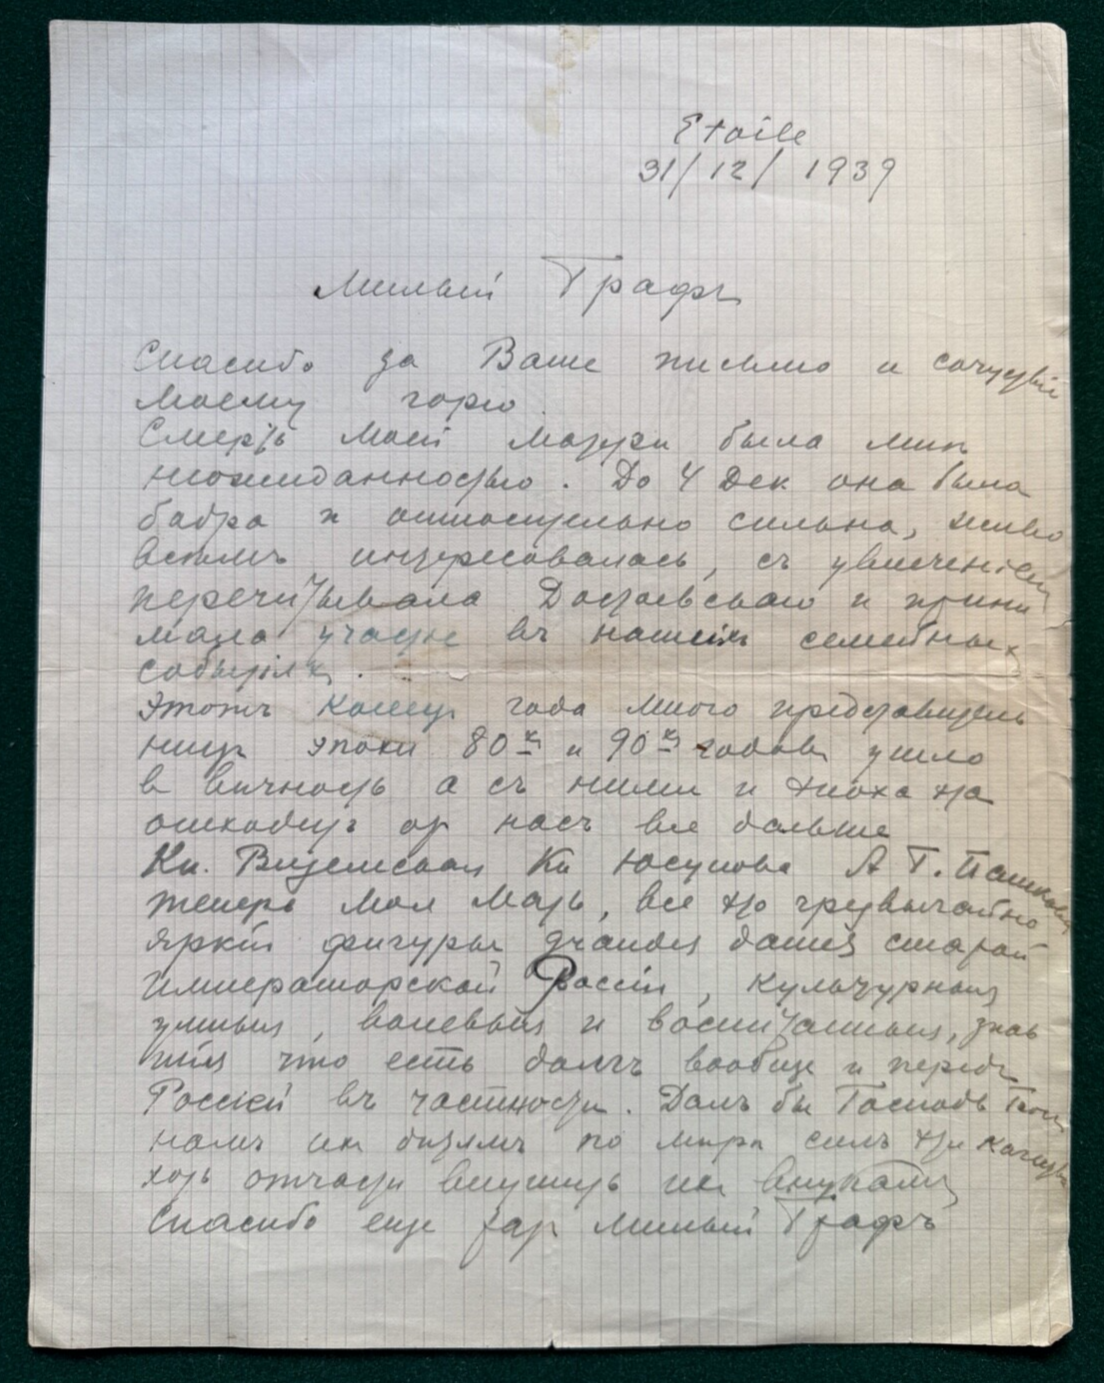 Etoile
31/12/1939
Милый Графъ
Спасибо за Ваше письмо и сочуствiе
моему горю.
Смерть моей матери была мнѣ
неожиданностью. До 4 Дек она была
бодра и относительно сильна, живо
всѣмъ интересовалась, съ увлеченiем
перечитывала Достоевскаго и прини
мала участiе въ нашихъ семейных
событiяхъ.
Этотъ конецъ года много представитель
ницъ эпохи 80хъ и 90хъ годовъ ушло
в вѣчность а съ ними и эпоха эта
отходитъ от насъ все дальше
Кн. Вяземская Кн Юсупова А Г. Пашкова
теперь моя мать, все это чрезвычайно
яркiя фигуры grandes dames старой
Императорской Россiи, культурныя
умныя, волевыя и воспитанныя, знав
шiя что есть долгъ вообще и передъ
Россiей въ частности. Далъ бы Господь Богъ
намъ их дѣтямъ по мѣрѣ силъ эти качества
хоть отчасти внушить их внукамъ
Спасибо еще раз милый Графъ